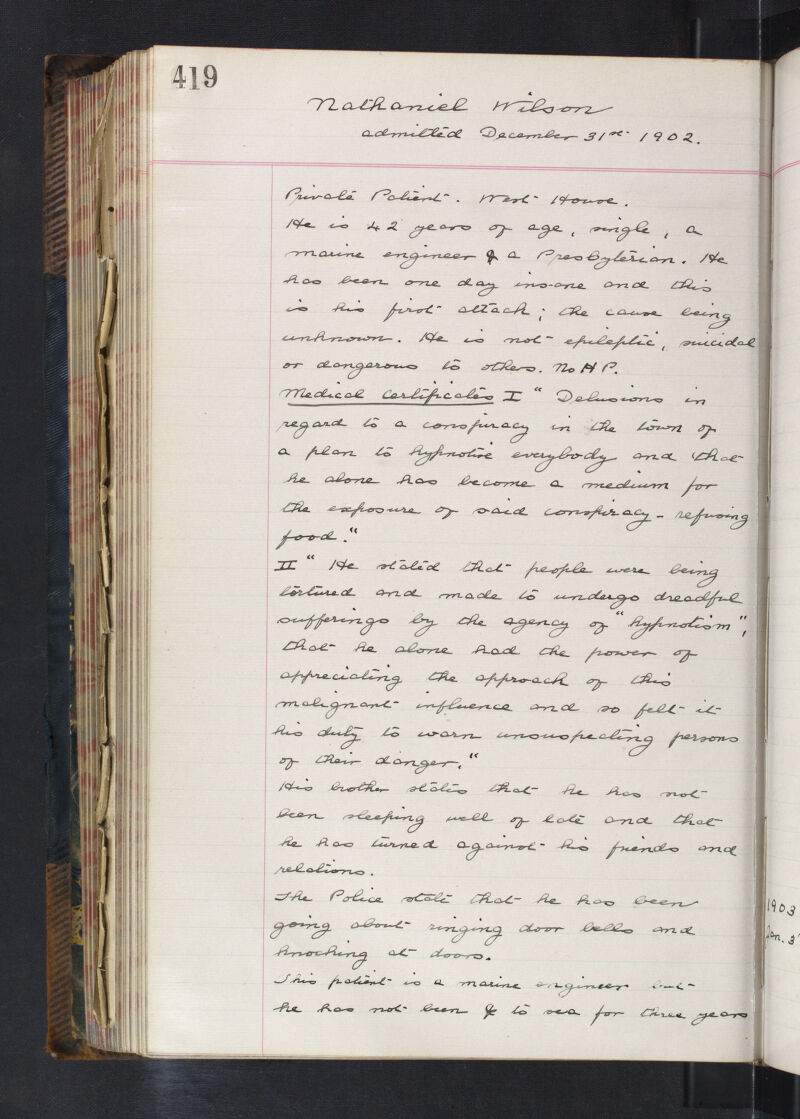 419
Nathaniel Wilson
admitted December 31st 1902.
Private Patient. West House.
He is 42 years of age, single, a
marine engineer & a Presbyterian. He
has been one day insane and this
is his first attack; the cause being
unknown. He is not epileptic, suicidal
or dangerous to others. No H P.
Medical Certificates I "Delusions in
regard to a conspiracy in the town of
a plan to hypnotise everybody and that
he alone has become a medium for
the exposure of said conspiracy - refusing
food."
II "He stated that people were being
tortured and made to undergo dreadful
sufferings by the agency of "hypnotism",
that he alone had the power of
appreciating the approach of this
malignant influence and so felt it
his duty to warn unsuspecting persons
of their danger."
His brother states that he has not
been sleeping well of late and that
he has turned against his friends and
relations.
The Police state that he has been
going about ringing door bells and
knocking at doors.
This patient is a marine engineer but
he has not been to sea for three years
1903
Jan. 3